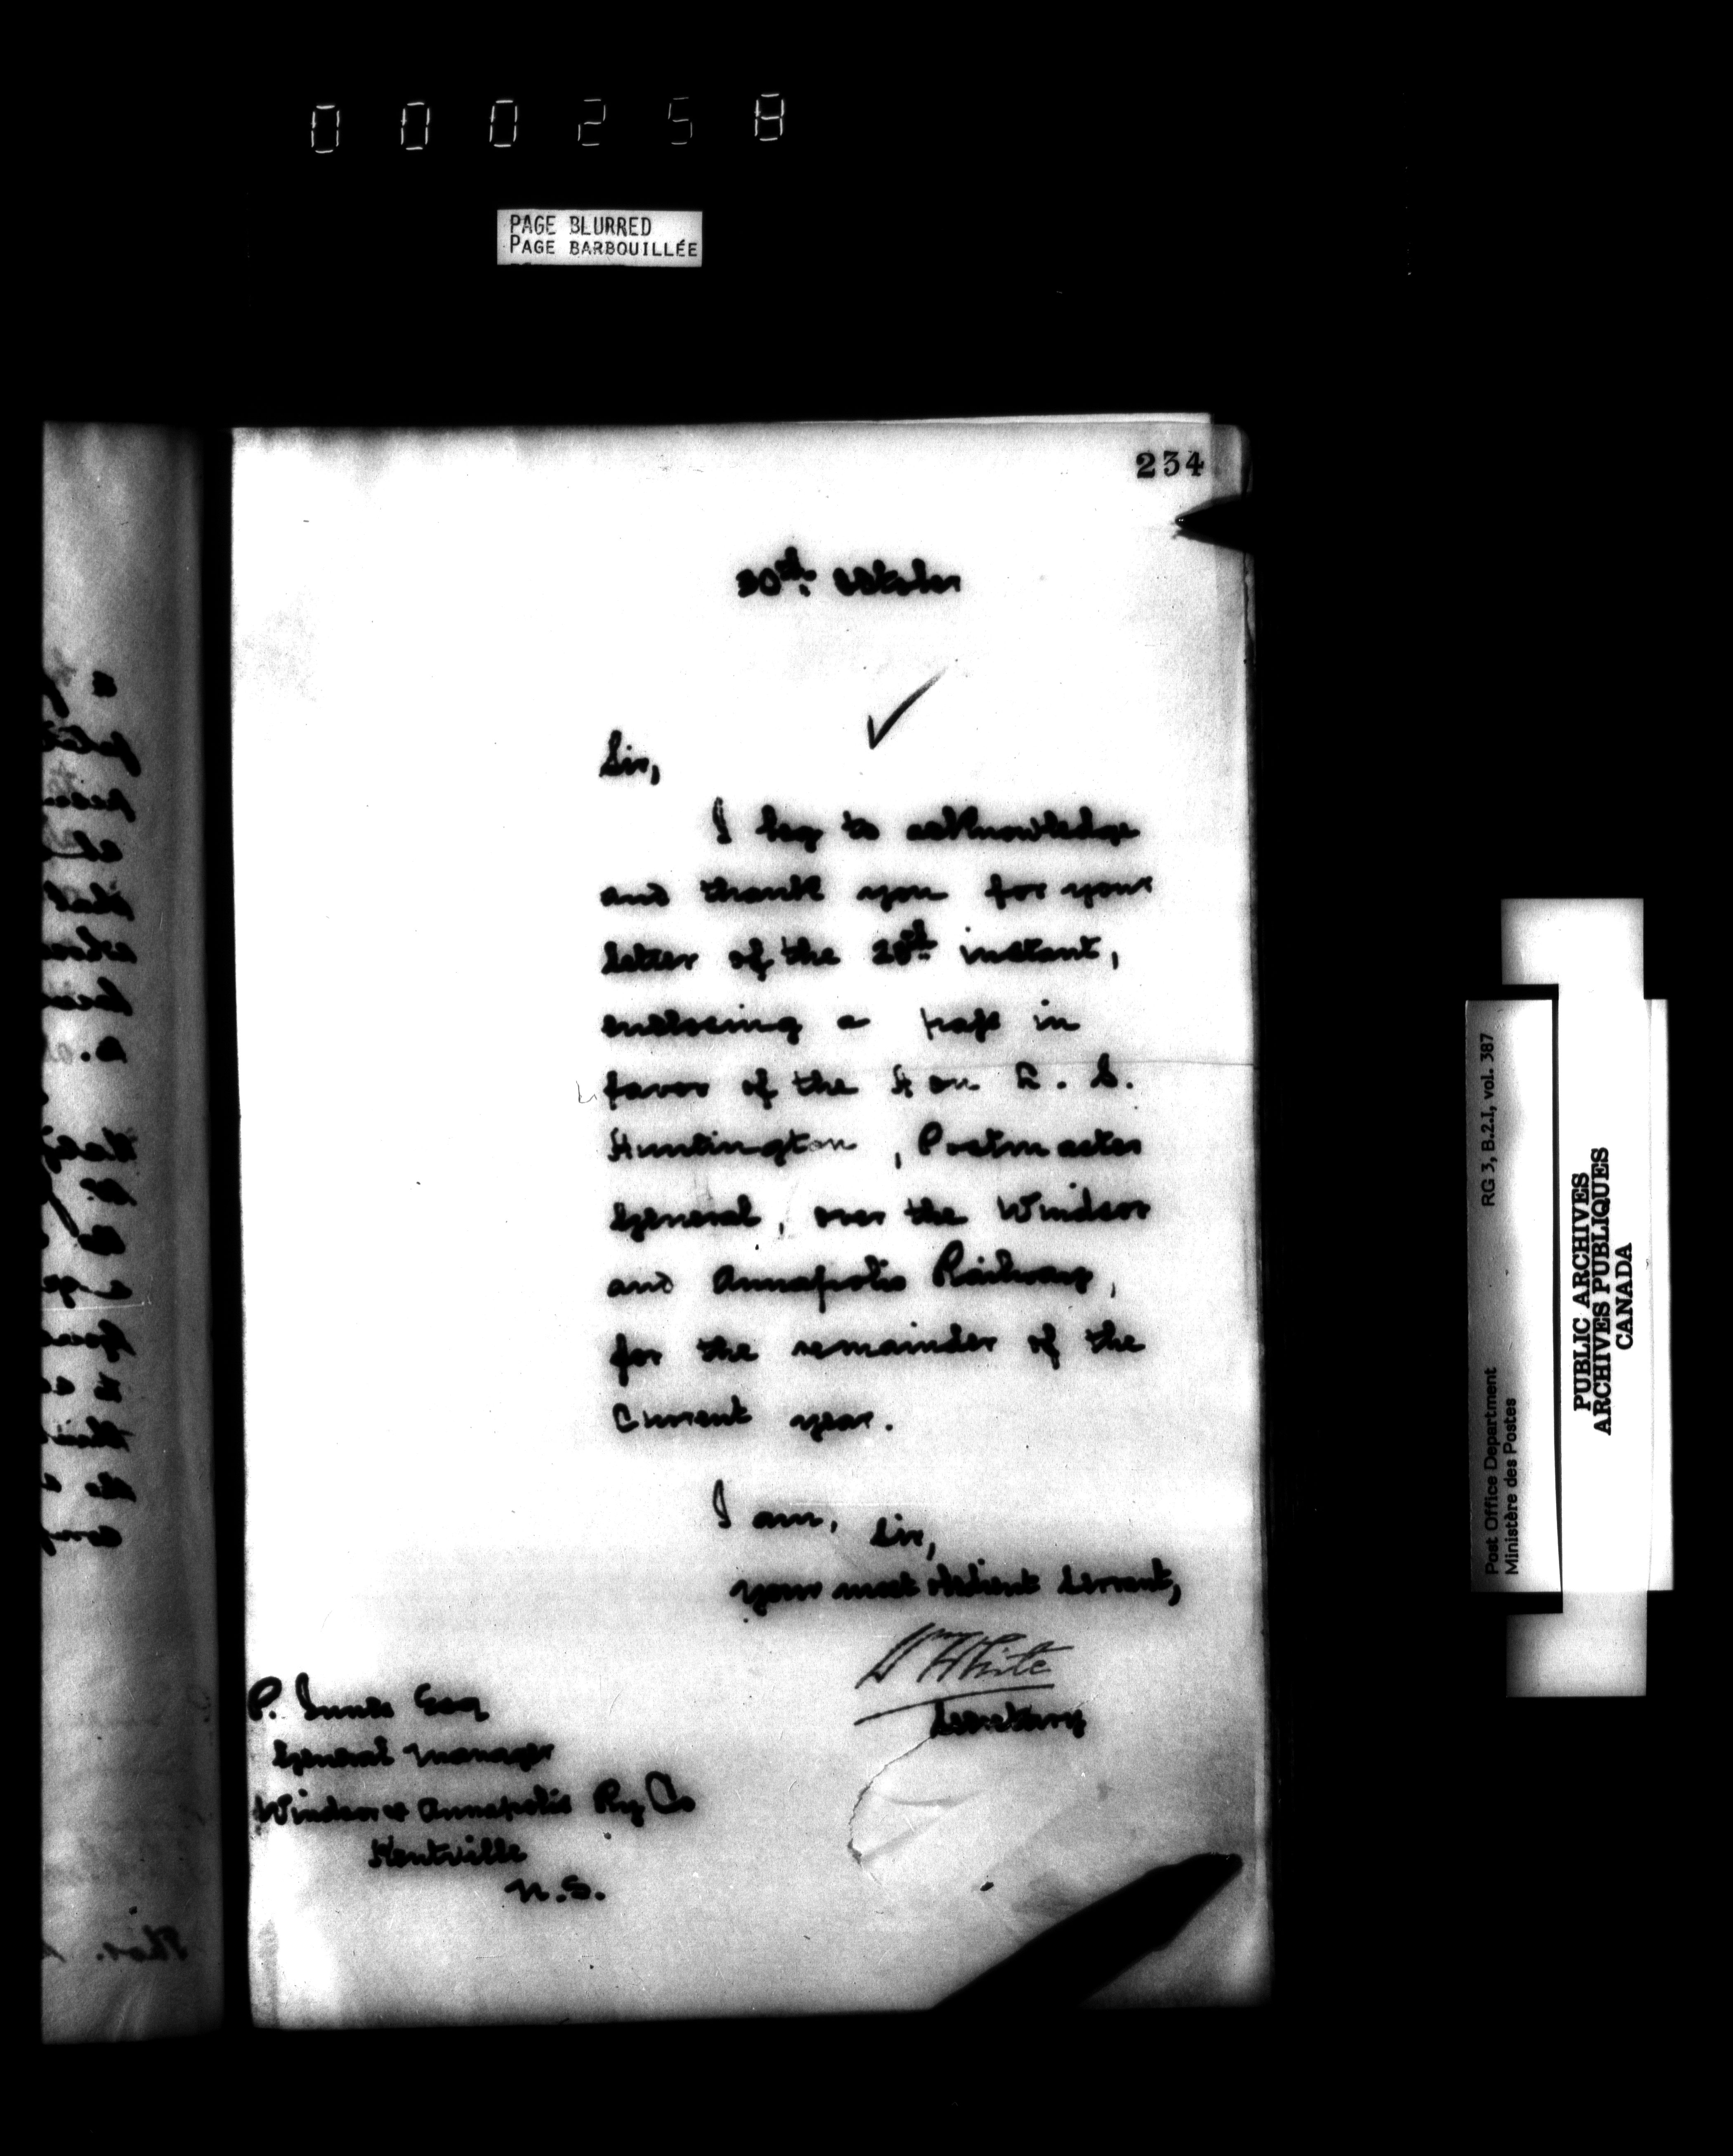 000258
PAGE BLURRED
PAGE BARBOUILLÉE
234
30th October
Sir,
I beg to acknowledge
and thank you for your
letter of the 28th instant,
enclosing a pass in
favor of the Hon L. S.
Huntington, Postmaster
General, over the Windsor
and Annapolis Railway,
for the remainder of the
Current year.
I am, Sir,
Your most obedient Servant,
Wm White
Secretary
P. Innes Esq
General Manager
Windsor & Annapolis Ry Co
Kentville
N.S.
RG 3, B.2.I, vol. 387
Post Office Department
Ministère des Postes
PUBLIC ARCHIVES
ARCHIVES PUBLIQUES
CANADA